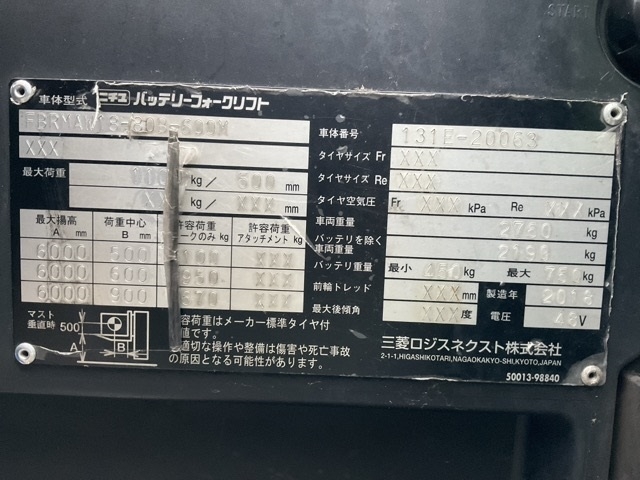 START
車体型式 ニチユ バッテリーフォークリフト
XXX
最大荷重 kg / 500 mm
kg / XXX mm
最大揚高 A mm 荷重中心 B mm 許容荷重 フォークのみ kg 許容荷重 アタッチメント kg
6000 500 XXX
6000 600 XXX
6000 900 XXX
マスト垂直時 500
A B
許容荷重はメーカー標準タイヤ付
値です。
不適切な操作や整備は傷害や死亡事故
の原因となる可能性があります。
車体番号 131E-20063
タイヤサイズ Fr XXX
タイヤサイズ Re XXX
タイヤ空気圧 Fr XXX kPa Re XXX kPa
車両重量 2750 kg
バッテリを除く車両重量 kg
バッテリ重量 最小 kg 最大 750 kg
前輪トレッド XXX mm 製造年 2018
最大後傾角 XXX 度 電圧 48 V
三菱ロジスネクスト株式会社
2-1-1,HIGASHIKOTARI,NAGAOKAKYO-SHI,KYOTO,JAPAN
50013-98840